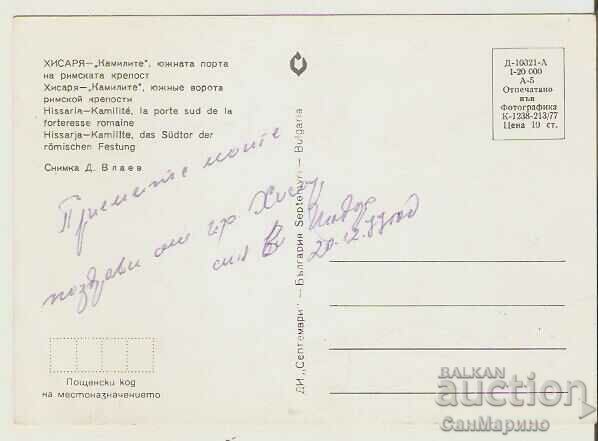 ХИСАРЯ—„Камилите“, южната порта
на римската крепост
Хисаря—„Камилите“, южные ворота
римской крепости
Hissaria—Kamilité, la porte sud de la
forteresse romaine
Hissarja—Kamilite, das Südtor der
römischen Festung
Снимка Д. Влаев
Приемете моите
поздрави от гр. Хисар
20.12.77 год
Пощенски код
на местоназначението
ДИ „Септември“ — България Septemvri — Bulgaria
Д-16321-А
1-20 000
А-5
Отпечатано
във
Фотографика
К-1238-213/77
Цена 10 ст.
BALKAN
auction
СанМарино